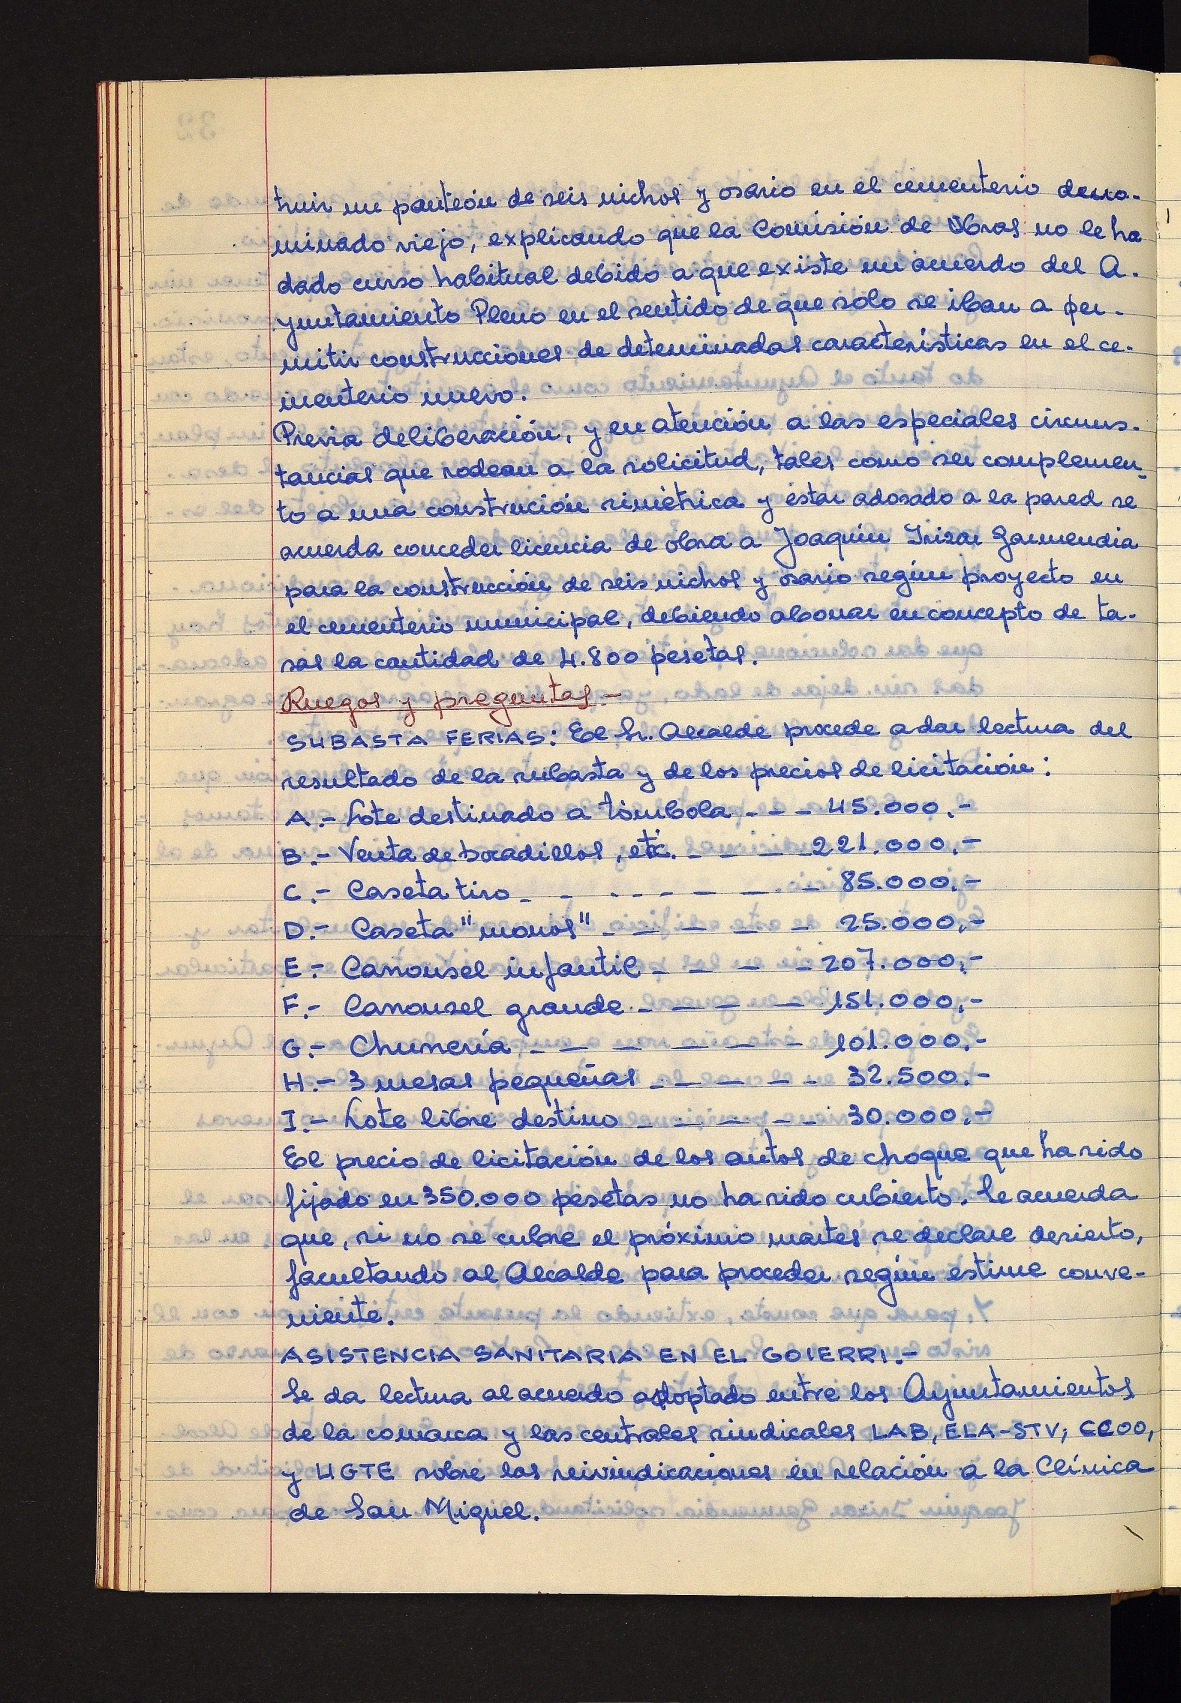 truir un panteón de seis nichos y osario en el cementerio deno-
minado viejo, explicando que la Comisión de Obras no le ha
dado curso habitual debido a que existe un acuerdo del A-
yuntamiento Pleno en el sentido de que solo se iban a per-
mitir construcciones de determinadas características en el ce-
menterio nuevo.
Previa deliberación, y en atención a las especiales circuns-
tancias que rodean a la solicitud, tales como ser complemen-
to a una construción simétrica y estar adosado a la pared se
acuerda conceder licencia de obra a Joaquín Irizar Garmendia
para la construcción de seis nichos y osario según proyecto en
el cementerio municipal, debiendo abonar en concepto de ta-
sas la cantidad de 4.800 pesetas.
Ruegos y preguntas.-
SUBASTA FERIAS: El Sr. Alcalde procede a dar lectura del
resultado de la subasta y de los precios de licitación:
A.- Lote destinado a tómbola - - - 45.000.-
B.- Venta de bocadillos, etc. - - - - 221.000,-
C.- Caseta tiro - - - - - - - - 85.000,-
D.- Caseta "monos" - - - - - - 25.000,-
E.- Carrousel infantil - - - - - 207.000,-
F.- Carrousel grande - - - - - 151.000,-
G.- Churrería - - - - - - - 101.000.-
H.- 3 mesas pequeñas - - - - - 32.500.-
I.- Lote libre destino - - - - - 30.000.-
El precio de licitación de los autos de choque que ha sido
fijado en 350.000 pesetas no ha sido cubierto. Se acuerda
que, si no se cubre el próximo martes se declare desierto,
facultando al Alcalde para proceder según estime conve-
niente.
ASISTENCIA SANITARIA EN EL GOIERRI.-
Se da lectura al acuerdo adoptado entre los Ayuntamientos
de la comarca y las centrales sindicales LAB, ELA-STV, CCOO,
y UGTE sobre las reivindicaciones en relación a la Clínica
de San Miguel.